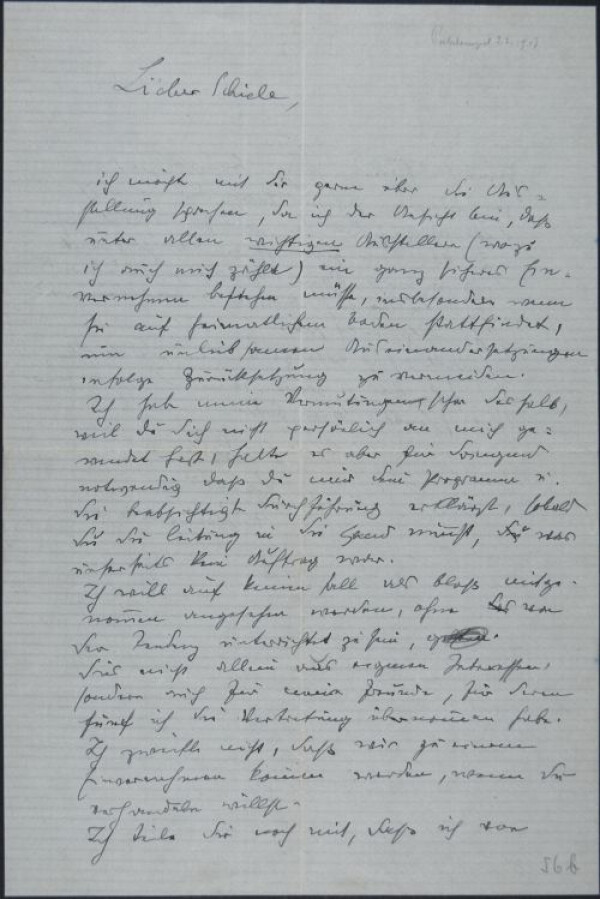 Lieber Schiele,
ich möchte mit Dir gerne über die Aus-
stellung sprechen, da ich der Ansicht bin, daß
unter allen wichtigen Ausstellern (wozu
ich auch mich zähle) ein ganz sicheres Ein-
vernehmen bestehen müsse, insbesondere wenn
sie auf heimatlichen Boden stattfindet,
um unliebsamen Auseinandersetzungen
infolge Zurücksetzung zu vermeiden.
Ich habe meine Vermutungen, schon deshalb,
weil Du Dich nicht persönlich an mich ge-
wendet hast, halte es aber für dringend
notwendig daß Du mir Dein Programm u.
die beabsichtigte Durchführung erklärst, sobald
Du die Leitung in die Hand nimmst, was
unserseits kein Auftrag war.
Ich will auf keinen Fall als bloß mitge-
nommen angesehen werden, ohne von
der Tendenz unterrichtet zu sein,
dies nicht allein aus eigenen Interessen,
sondern auch für meine Freunde, für deren
fünf ich die Vertretung übernommen habe.
Ich zweifle nicht, daß wir zu einem
Einvernehmen kommen werden, wenn Du
verhandeln willst.
Ich teile Dir noch mit, daß ich von
56b